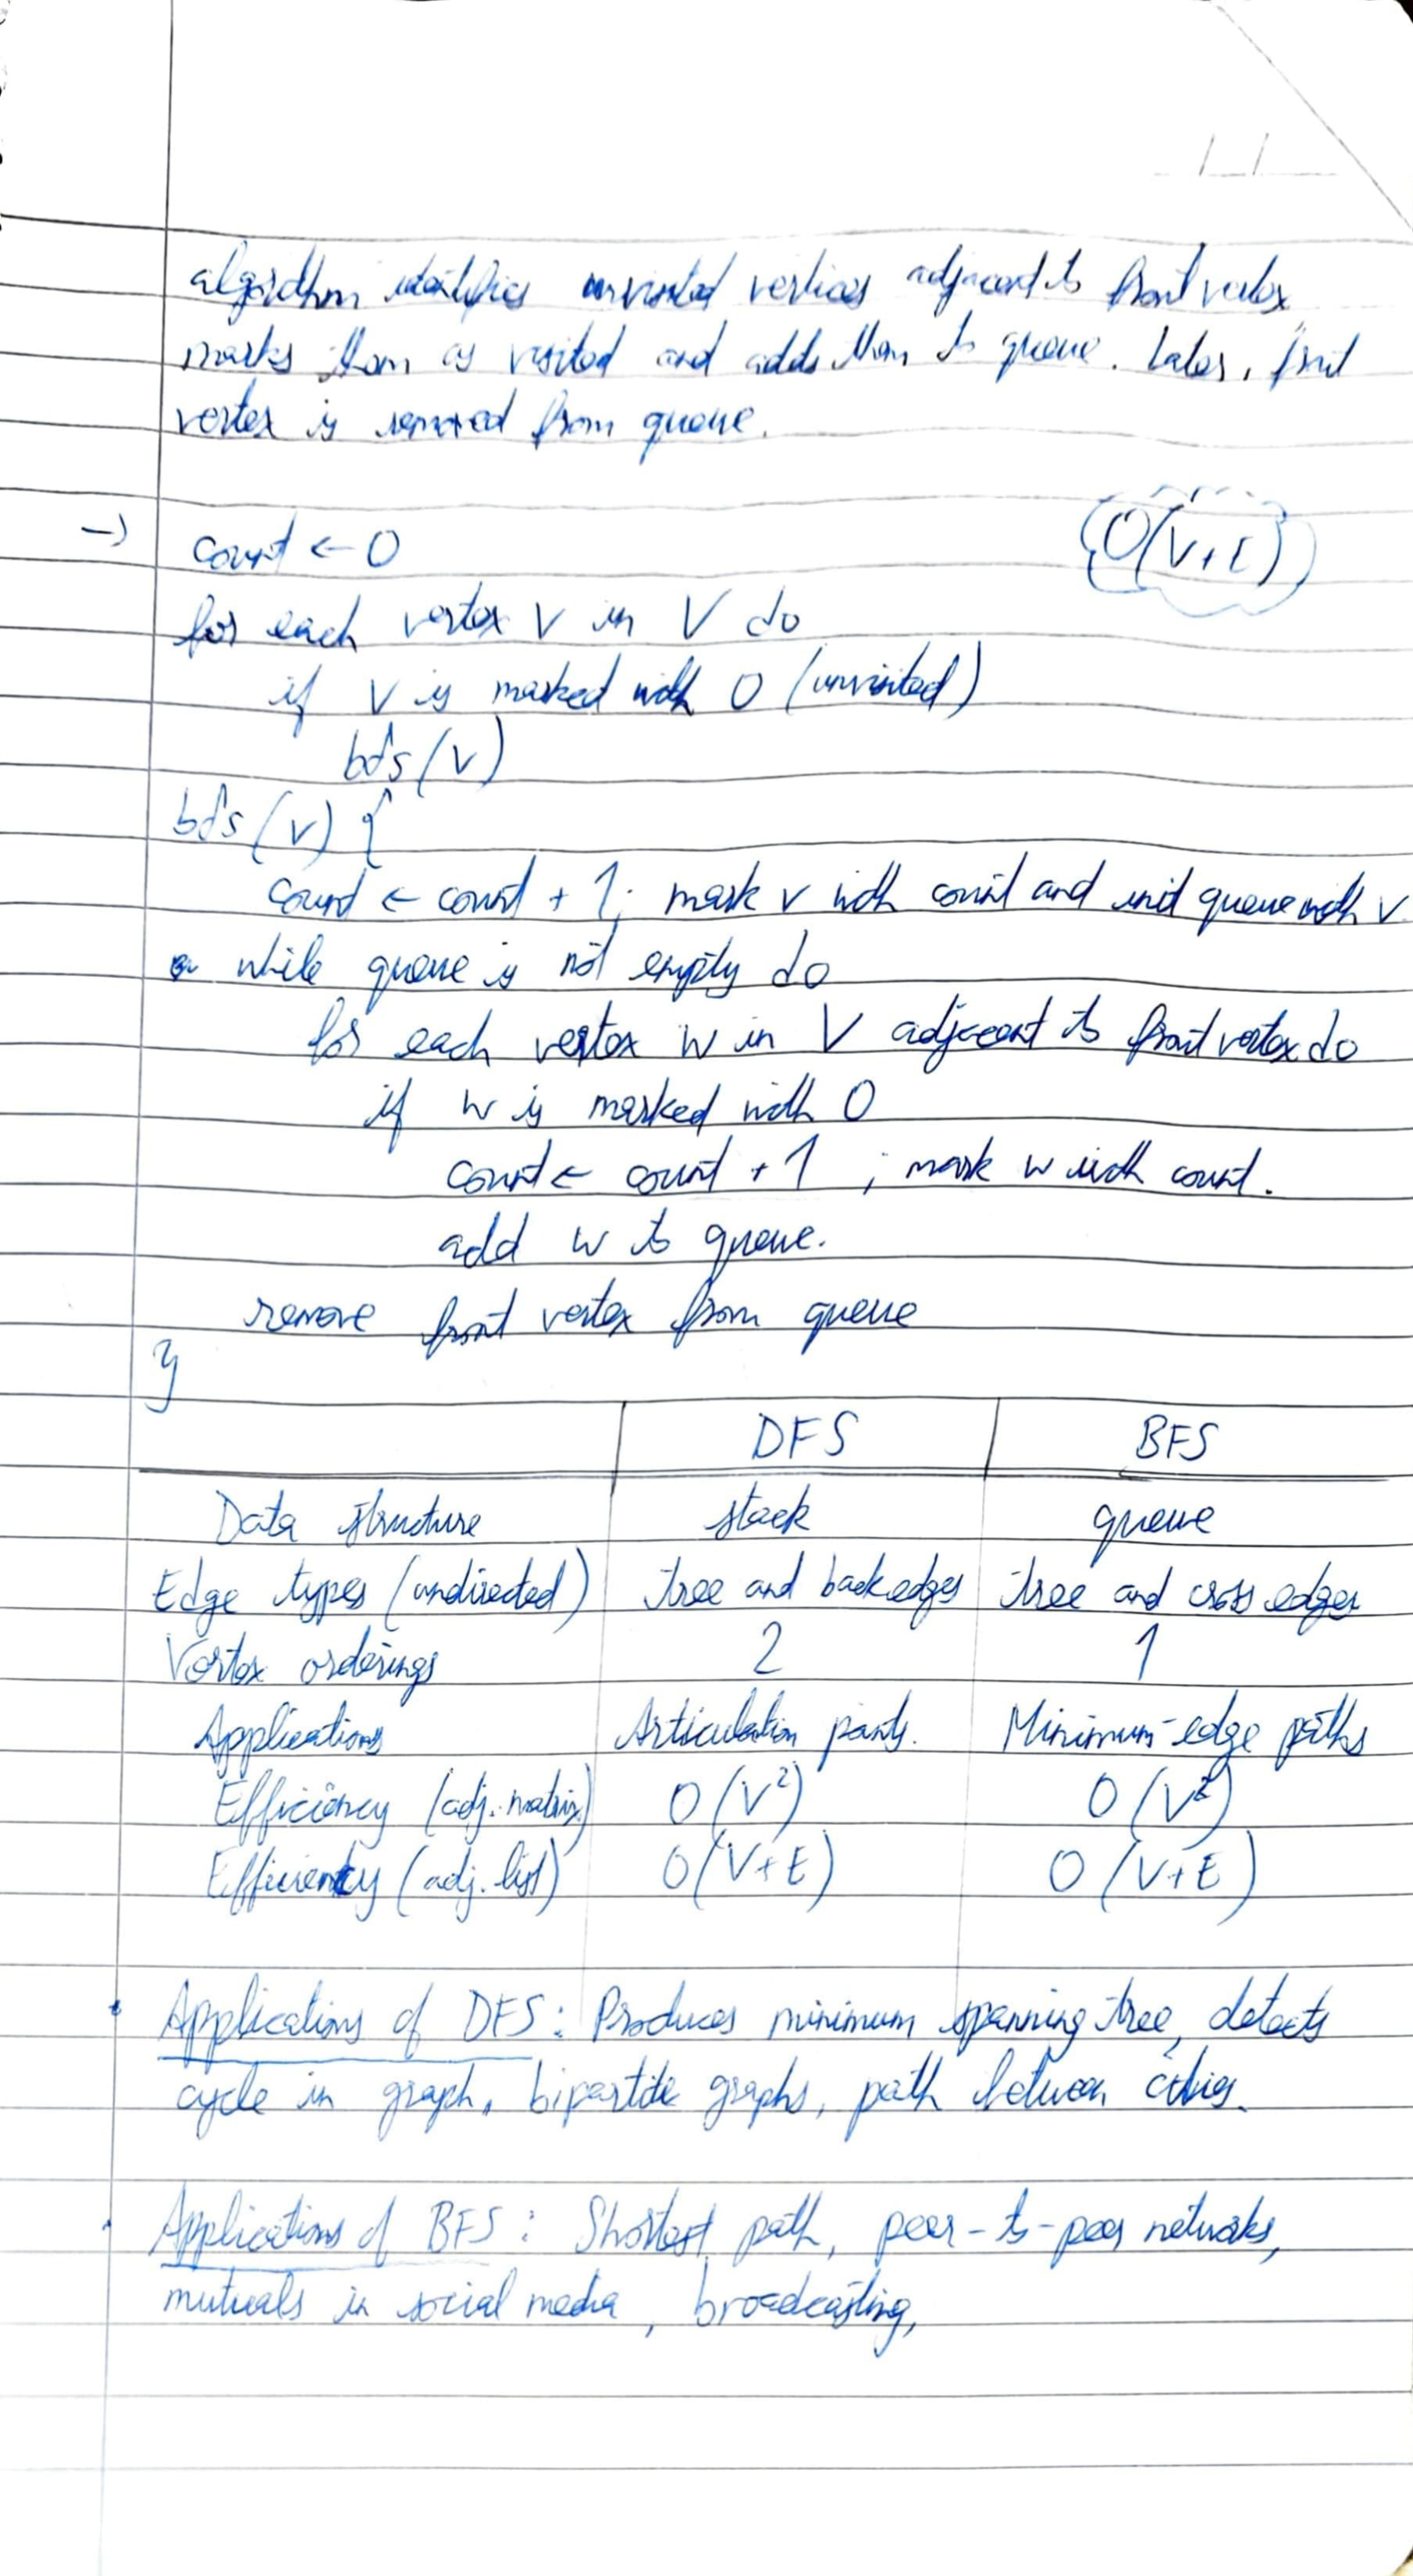 algorithm identifies unvisited vertices adjacent to front vertex,
marks them as visited and adds them to queue. Later, front
vertex is removed from queue.
→ count ← 0
O(V+E)
for each vertex v in V do
if v is marked with 0 (unvisited)
bfs(v)
bfs(v) {
count ← count + 1; mark v with count and init queue with v
while queue is not empty do
for each vertex w in V adjacent to front vertex do
if w is marked with 0
count ← count + 1 ; mark w with count.
add w to queue.
remove front vertex from queue
}
DFS BFS
Data structure stack queue
Edge types (undirected) tree and back edges tree and cross edges
Vertex orderings 2 1
Applications Articulation points. Minimum-edge paths
Efficiency (adj. matrix) O(V²) O(V²)
Efficiency (adj. list) O(V+E) O(V+E)
• Applications of DFS: Produces minimum spanning tree, detects
cycle in graph, bipartite graphs, path between cities.
• Applications of BFS: Shortest path, peer-to-peer networks,
mutuals in social media, broadcasting,